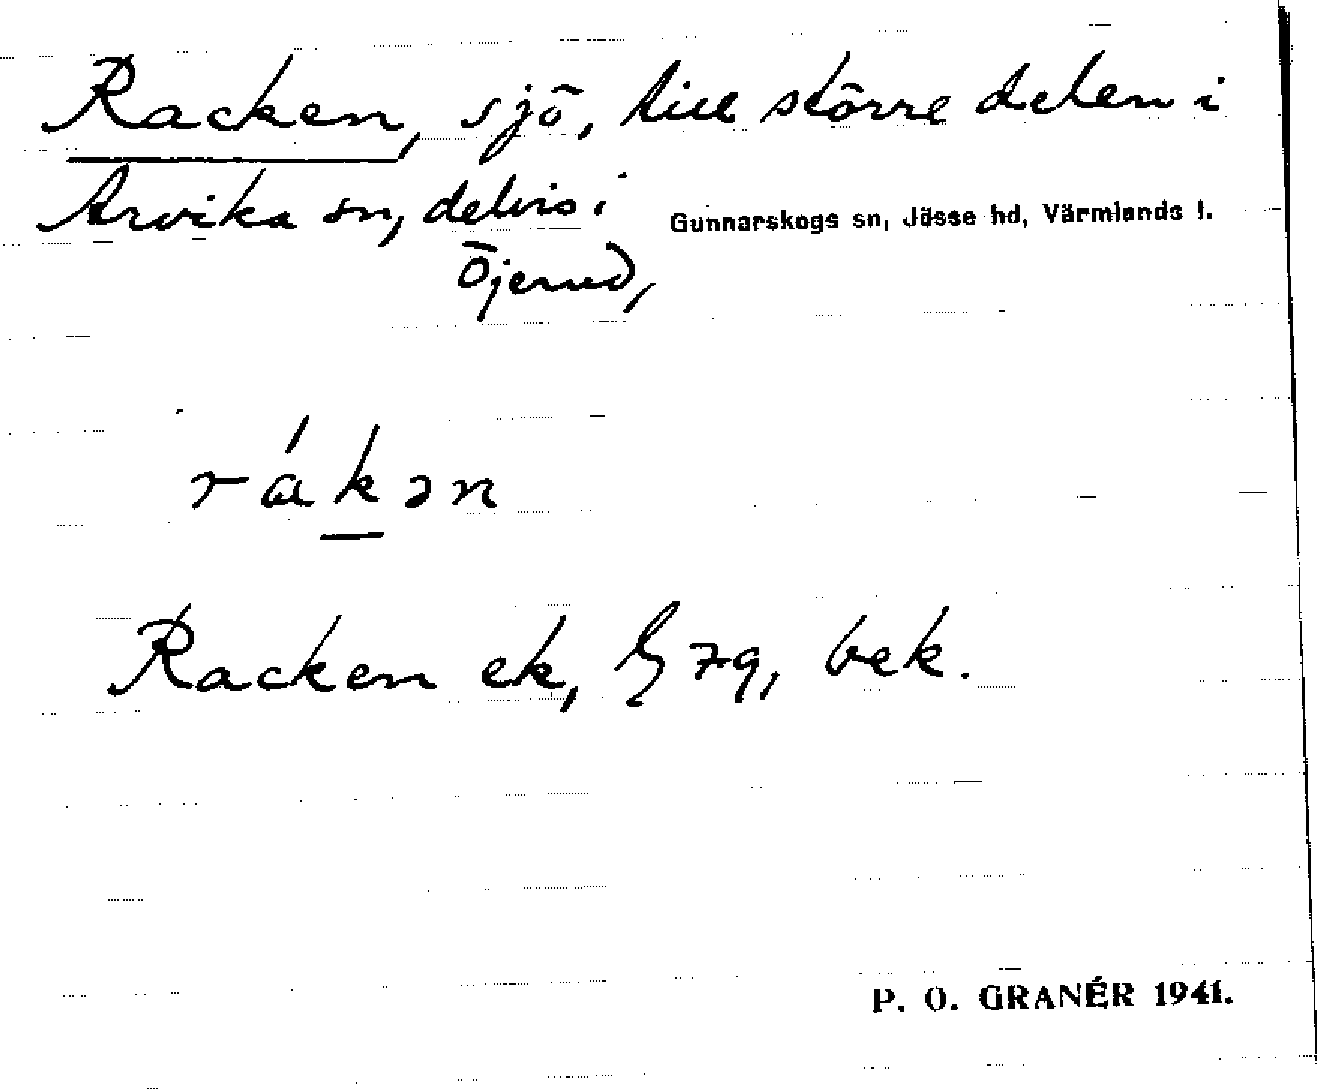 Racken, sjö, till större delen i
Arvika sn, delvis i Gunnarskogs sn, Jösse hd, Värmlands l.
Öjerud,
rákən
Racken ek, G 79, bek.
P. O. GRANÉR 1941.